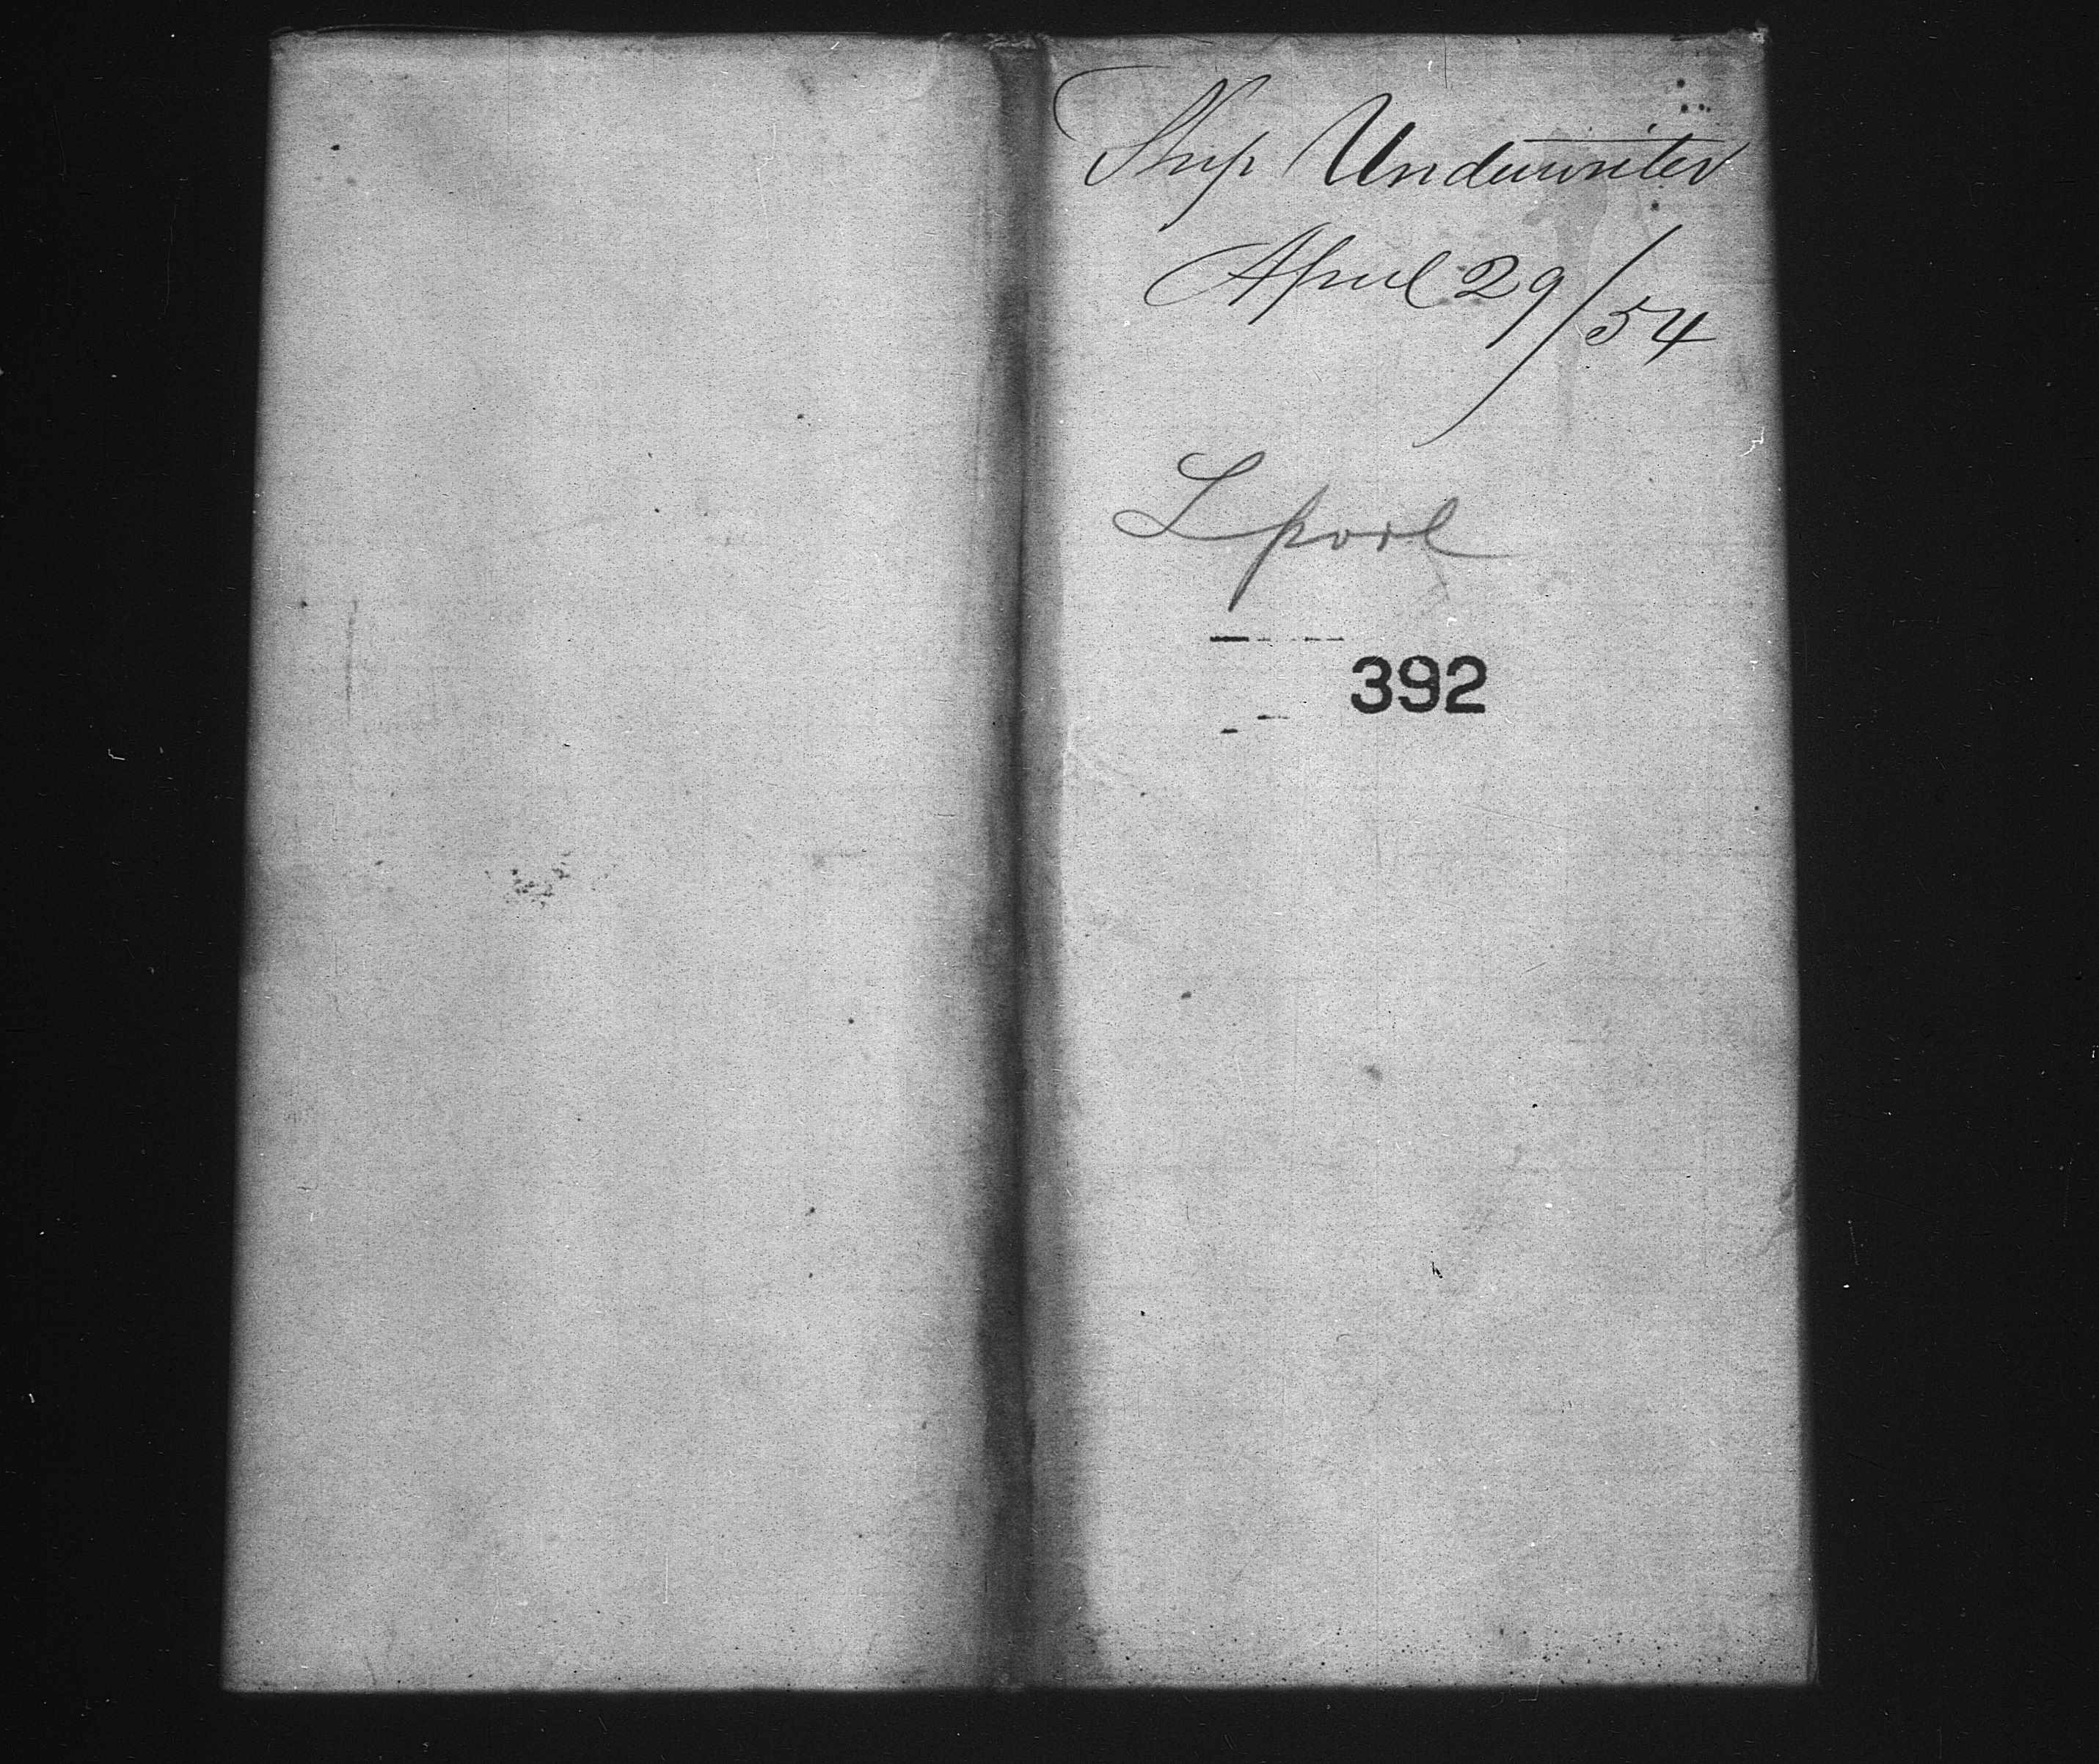 Ship Underwriter
April 29/54
Lpool
392